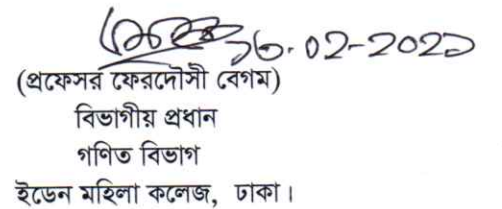 ১৬.০২-২০২১
(প্রফেসর ফেরদৌসী বেগম)
বিভাগীয় প্রধান
গণিত বিভাগ
ইডেন মহিলা কলেজ, ঢাকা।